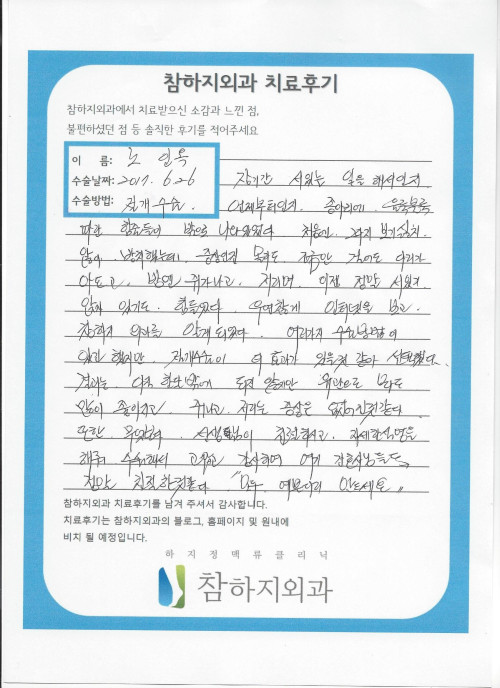 참하지외과 치료후기
참하지외과에서 치료받으신 소감과 느낀 점,
불편하셨던 점 등 솔직한 후기를 적어주세요
이 름: 노
수술날짜: 2017. 6. 26
수술방법: 절개수술.
장기간 서있는 일을 해서인지
언제부터인지. 종아리에 울룩불룩
파란 힘줄들이 밖으로 나와있었다 처음엔 그다지 보기싫치
않아 방치했는데. 증상인걸 몰라도 조금만 걸어도 다리가
아프고, 밤엔 쥐가나고, 저리며, 이젠 정말 서있기,
앉아 있기도 힘들었다. 우연찮게 인터넷을 보고.
참하지 외과를 알게 되었다. 여러가지 수술방법이
있긴 했지만, 절개수술이 더 효과가 있을것 같아 선택했다.
결과는. 아직 한달 밖에 되지 않았지만 육안으로 봐도
많이 좋아지고. 쥐나고. 저리는 증상은 없어진것같다.
또한 원장님. 선생님들이 친절하시고. 자세한설명을
해주시 수술해서 고맙고 감사하며 여기 간호사님들도
정말 친절하신것같다 "모두. 예쁜다리 만드세요"
참하지외과 치료후기를 남겨 주셔서 감사합니다.
치료후기는 참하지외과의 블로그, 홈페이지 및 원내에
비치 될 예정입니다.
하지정맥류클리닉
참하지외과